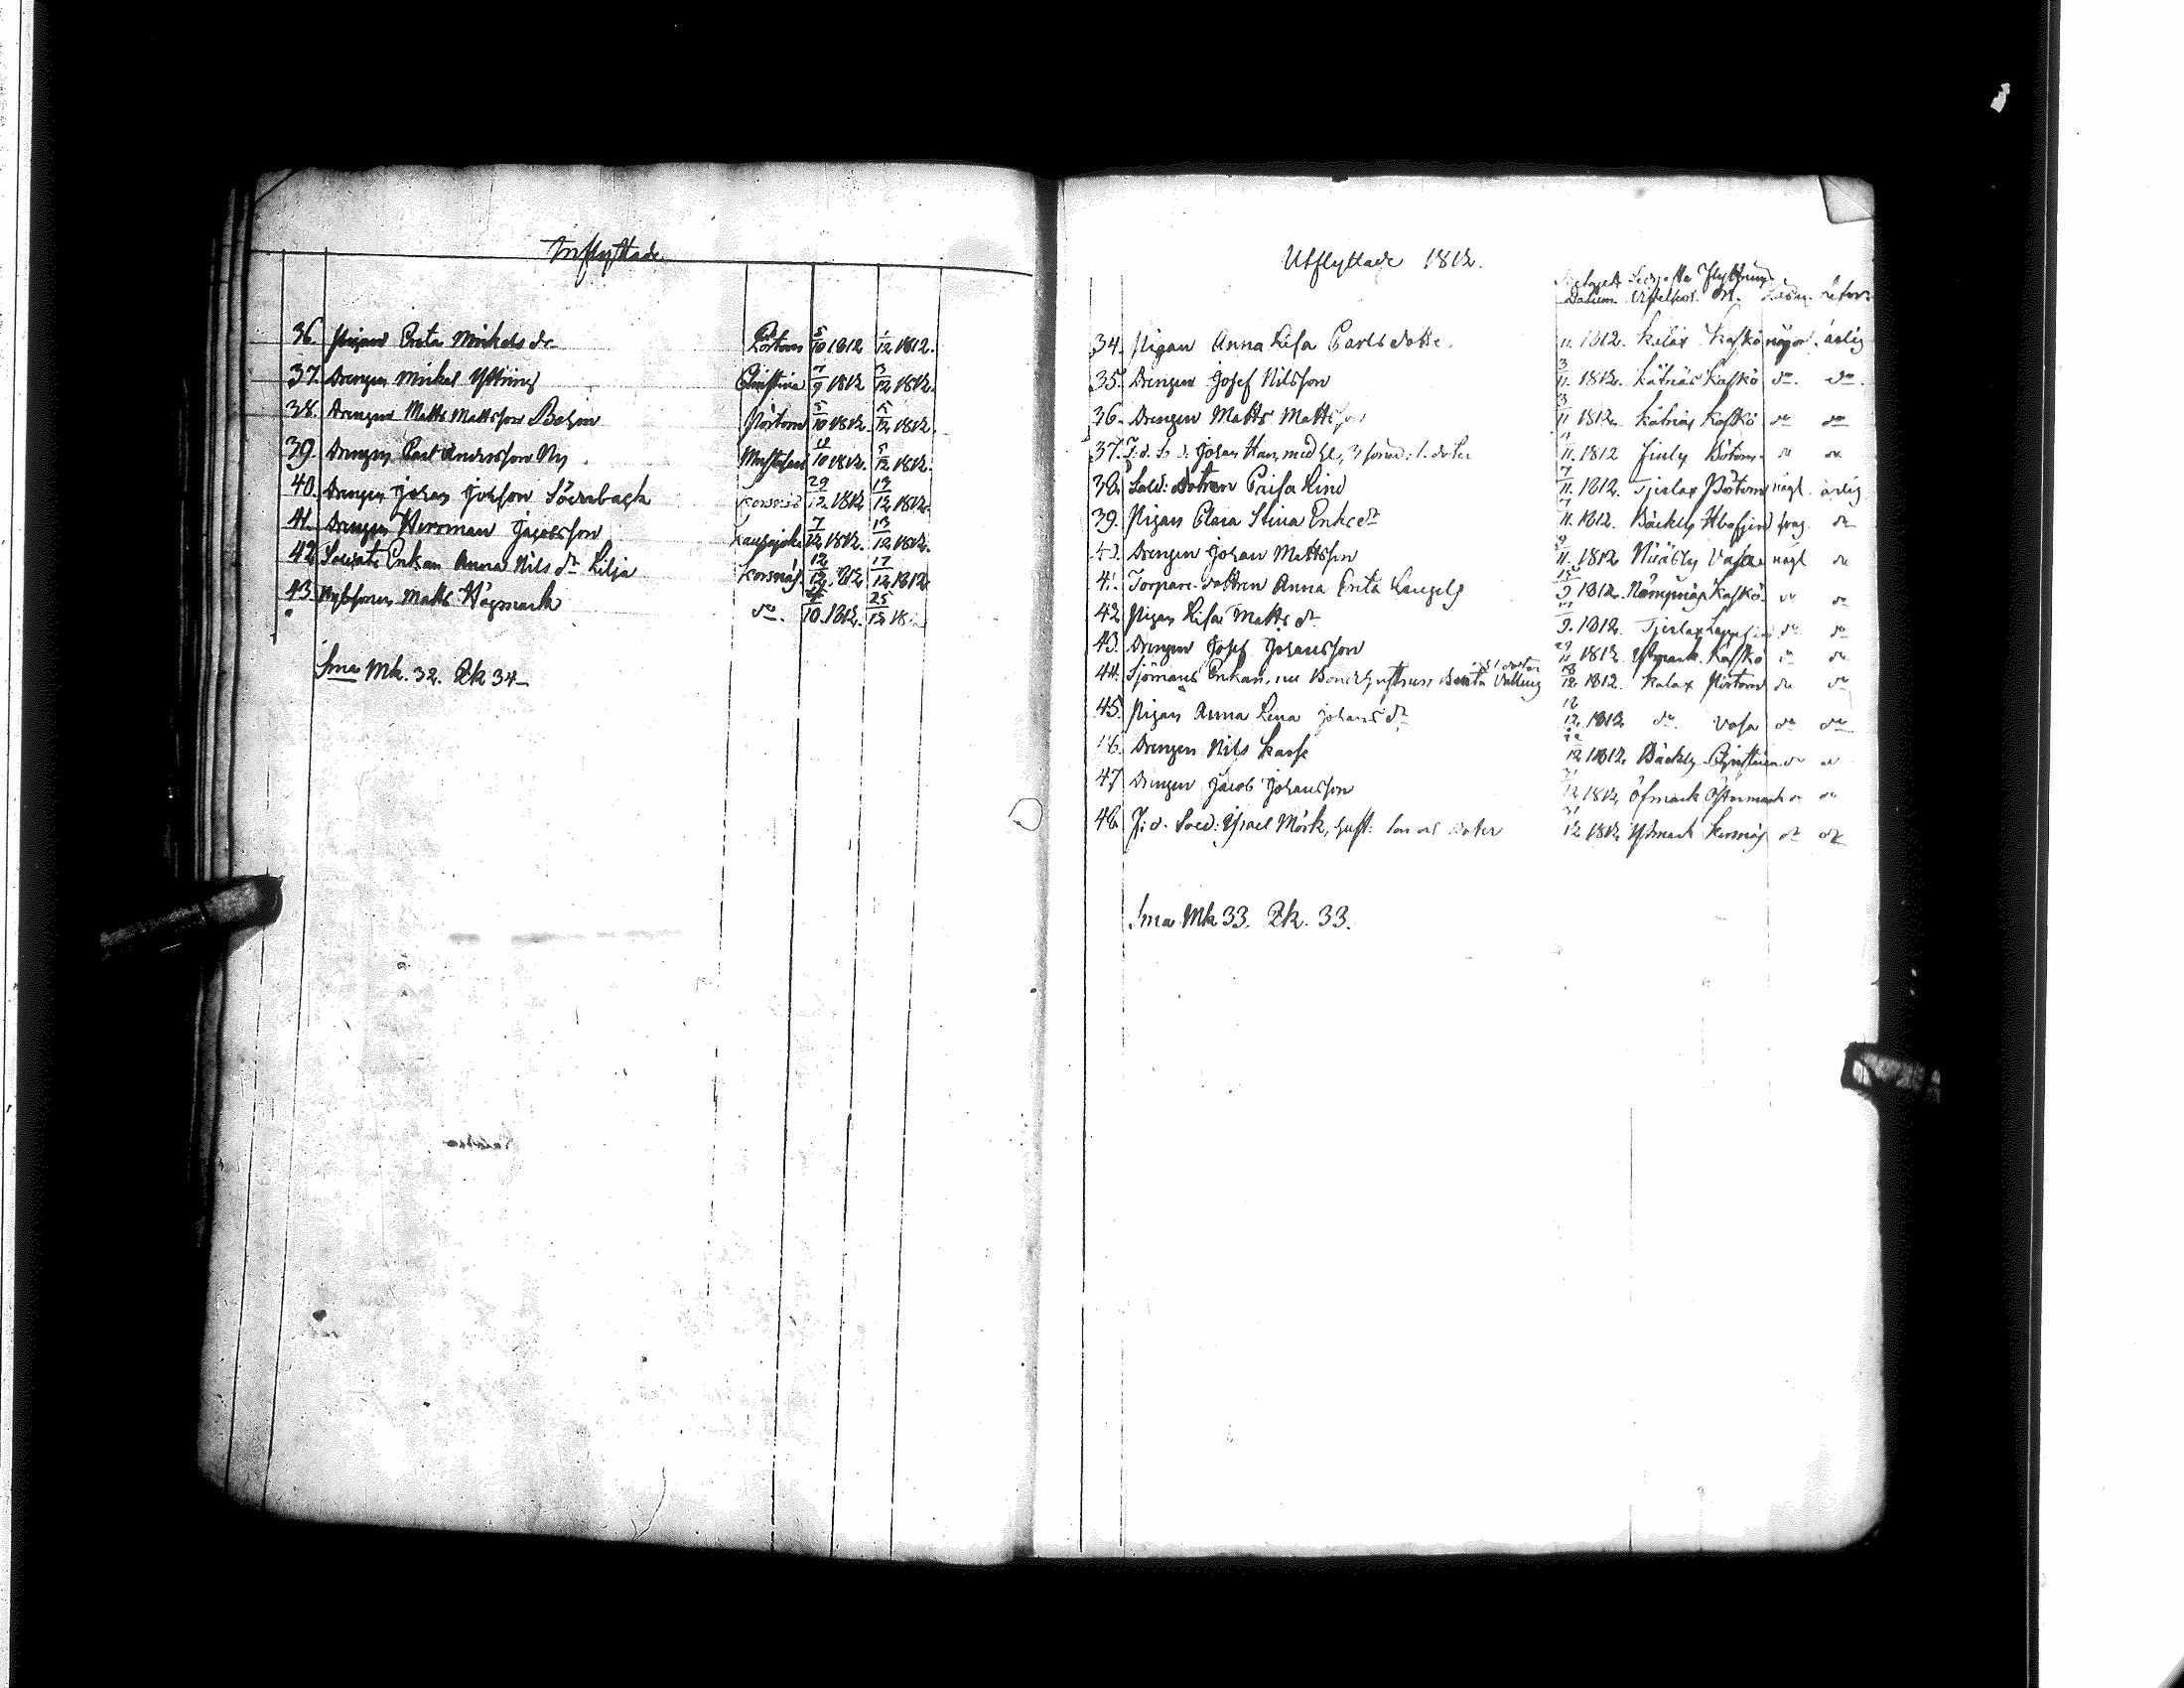 Inflyttade
36. Pigan Greta Mickels dr Pörtom 5/10 1812 1/12 1812.
37. Drengen Mickel Ytting Christina 7/9 1812 3/12 1812.
38. Drengen Matts Mattsson Pörtom 5/10 1812. 5/12 1812.
39. Drengen Carl Andersson Ny 10 1812. 5/12 1812.
40. Drengen Johan Söderback Korsnäs 29/12 1812 13/12 1812.
41. Drengen Herrman Jacobsson 7/12 1812. 13/12 1812.
42. Soldate Enkan Anna Nils dr Lilja Korsnäs. 12/12 1812. 17/12 1812
43. Matts Högmark do. 10. 1812. 25/12 18
Sma Mk. 32. Qk 34
Utflyttade 1812.
Datum Ort. Läsn.
34. Pigan Anna Lisa Carlsdotter. 11. 1812. Kalax Kaskö någor. ärlig
35. Drengen Josef Nilsson 3/11. 1812. Kåtnäs Kaskö do. do.
36. Drengen Matts Mattsson 3/11 1812. Kåtnäs Kaskö do do
37. F.d. Johan Han, med h, 3 söner, 1. doter 11. 1812 Finby do do
38. Sold: dotren Lind 7/11. 1812. Tjerlax Pörtom någl. ärlig
39. Pigan Clara Stina Ericsdr 7/11. 1812. Bäckby frag. do
40. Drengen Johan Mattsson 9/11. 1812 Näsby Vasa någl do
41. Torpare dottren Anna Greta 15/9 1812. Nämpnäs Kaskö. do do
42. Pigan Lisa Matts dr 9. 1812. Tjerlax do do
43. Drengen Josef Johansson 29/11 1812 Kaskö do do
44. Sjömans Enkan, nu Bondehustrun Beata 12. 1812. Kalax Pörtom do do
45. Pigan Anna Lena Johans dr 12/12. 1812 do. Vasa do do
46. Drengen Nils 12 1812. Bäckby Christina do do
47. Drengen Jacob Johansson 12 1812 Öfmark Östermark do do
48. F:d. Sold: Israel Mörk, hust: son och doter 12 1812 Korsnäs do do
Sma Mk 33. Qk. 33.